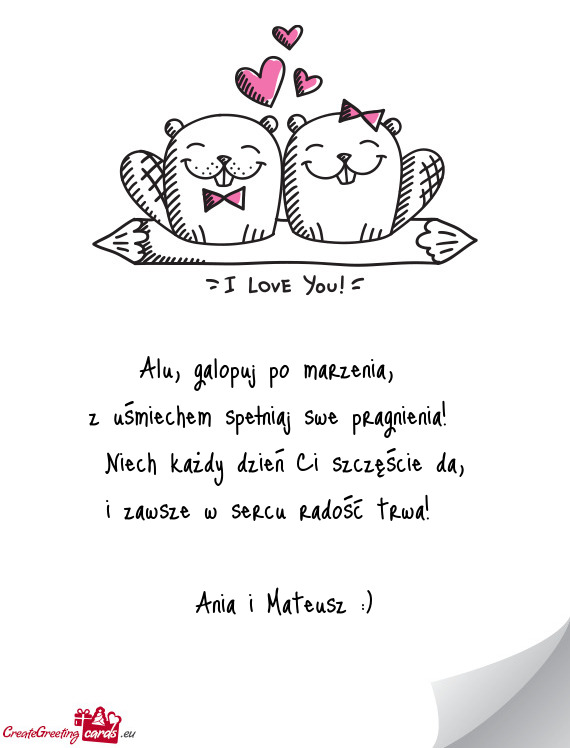 I Love You!
Alu, galopuj po marzenia,
z uśmiechem spełniaj swe pragnienia!
Niech każdy dzień Ci szczęście da,
i zawsze w sercu radość trwa!
Ania i Mateusz :)
CreateGreeting cards .eu